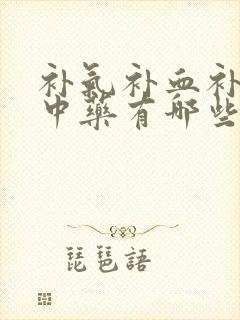 补氣补血补
中藥有哪些
琵琶語